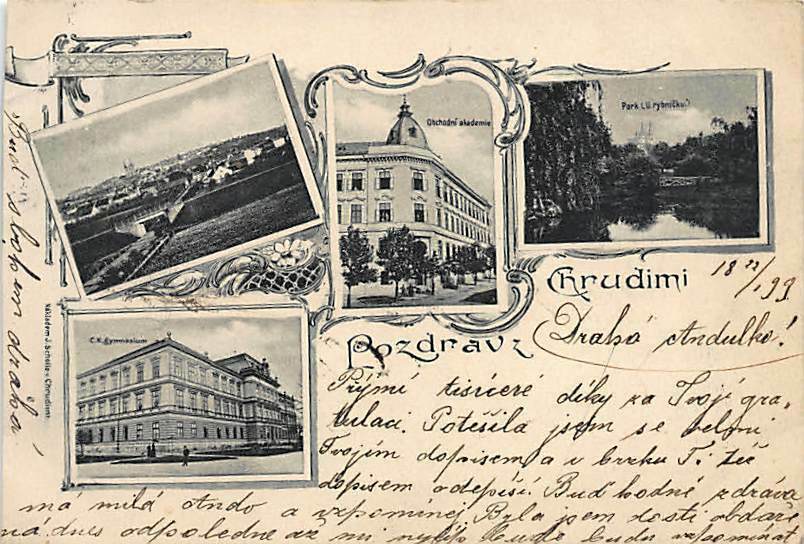 Obchodní akademie
Park („U rybníčku“)
C.K. Gymnasium
Nákladem J. Scholle v Chrudimi.
Pozdrav z Chrudimi
18 22/1 99
Drahá Andulko!
Přijmi tisíceré díky za Tvojí gra-
tulaci. Potěšila jsem se velmi
Tvojím dopisem a v brzku Ti též
dopisem odepíši. Buď hodně zdráva
má milá Ando a vzpomínej Byla jsem dosti obdaře
ná dnes odpoledne až mi bude vzpomínat
Buď s bohem drahá!